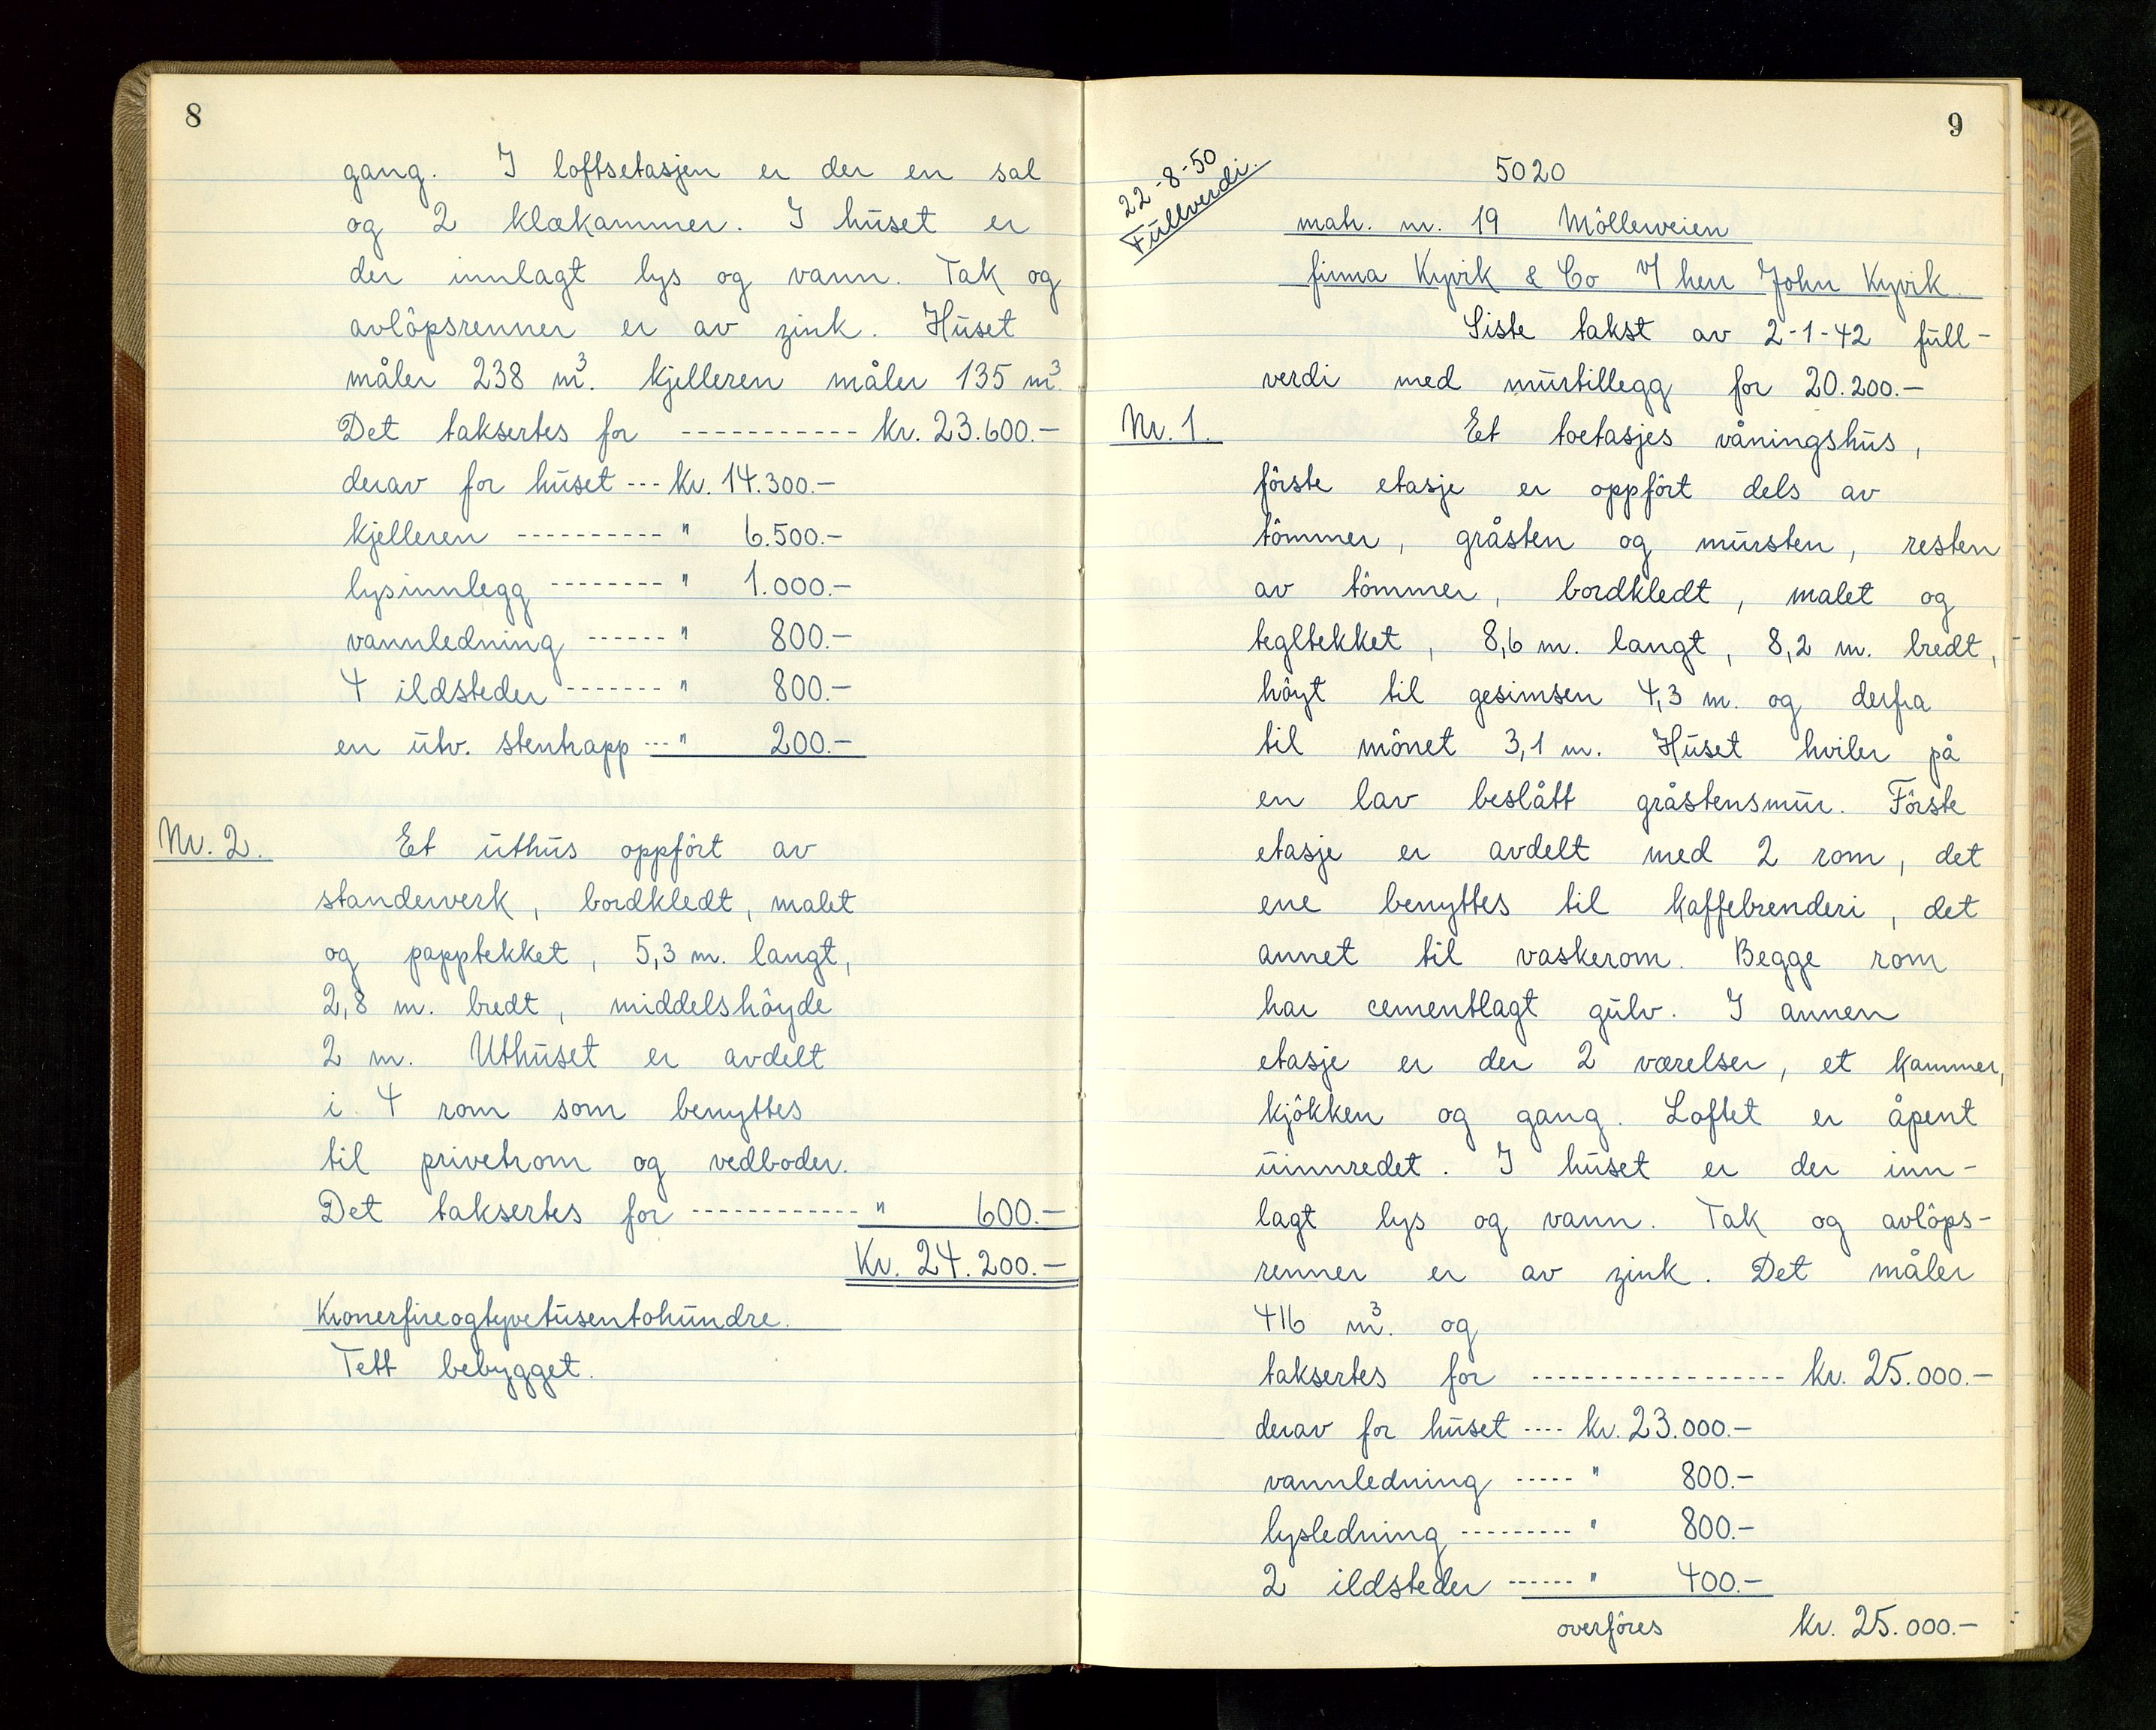 8
gang. I loftsetasjen er der en sal
og 2 klækammer. I huset er
der innlagt lys og vann. Tak og
avlöpsrenner er av zink. Huset
måler 238 m³. kjelleren måler 135 m³.
Det taksertes for ----------- kr. 23.600.-
derav for huset --- kr. 14.300.-
kjelleren ---------- " 6.500.-
lysinnlegg -------- " 1.000.-
vannledning ------ " 800.-
4 ildsteder ------- " 800.-
en utv. stentrapp --- " 200.-
Nr. 2. Et uthus oppfört av
standerverk, bordkledt, malet
og papptekket, 5,3 m. langt,
2,8 m. bredt, middelshöyde
2 m. Uthuset er avdelt
i 4 rom som benyttes
til privetrom og vedboder.
Det taksertes for ------------ " 600.-
Kr. 24.200.-
Kronerfireogtyvetusentohundre.
Tett bebygget.
9
22-8-50
Fullverdi.
5020
matr. nr. 19 Möllerveien
firma Kyvik & Co v/ herr John Kyvik.
Siste takst av 2-1-42 full-
verdi med murtillegg for 20.200.-
Nr. 1. Et toetasjes våningshus,
förste etasje er oppfört dels av
tömmer, gråsten og mursten, resten
av tömmer, bordkledt, malet og
tegltekket, 8,6 m. langt, 8,2 m. bredt,
höyt til gesimsen 4,3 m. og derfra
til mönet 3,1 m. Huset hviler på
en lav beslått gråstensmur. Förste
etasje er avdelt med 2 rom, det
ene benyttes til kaffebrenderi, det
annet til vaskerom. Begge rom
har cementlagt gulv. I annen
etasje er der 2 værelser, et kammer,
kjökken og gang. Loftet er åpent
uinnredet. I huset er der inn-
lagt lys og vann. Tak og avlöps-
renner er av zink. Det måler
416 m³. og
taksertes for ------------------ kr. 25.000.-
derav for huset ---- kr. 23.000.-
vannledning ----- " 800.-
lysledning --------- " 800.-
2 ildsteder ------ " 400.-
overföres kr. 25.000.-